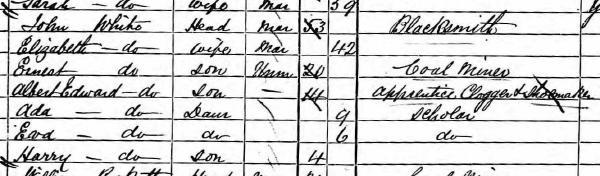 Sarah — do Wife Mar 39
John White Head Mar 53 Blacksmith
Elizabeth — do Wife Mar 42
Ernest — do Son Unm 20 Coal Miner
Albert Edward — do Son — 14 Apprentice Clogger & Shoemaker
Ada — do Daur 9 Scholar
Eva — do do 6 do
Harry — do Son 4
Head